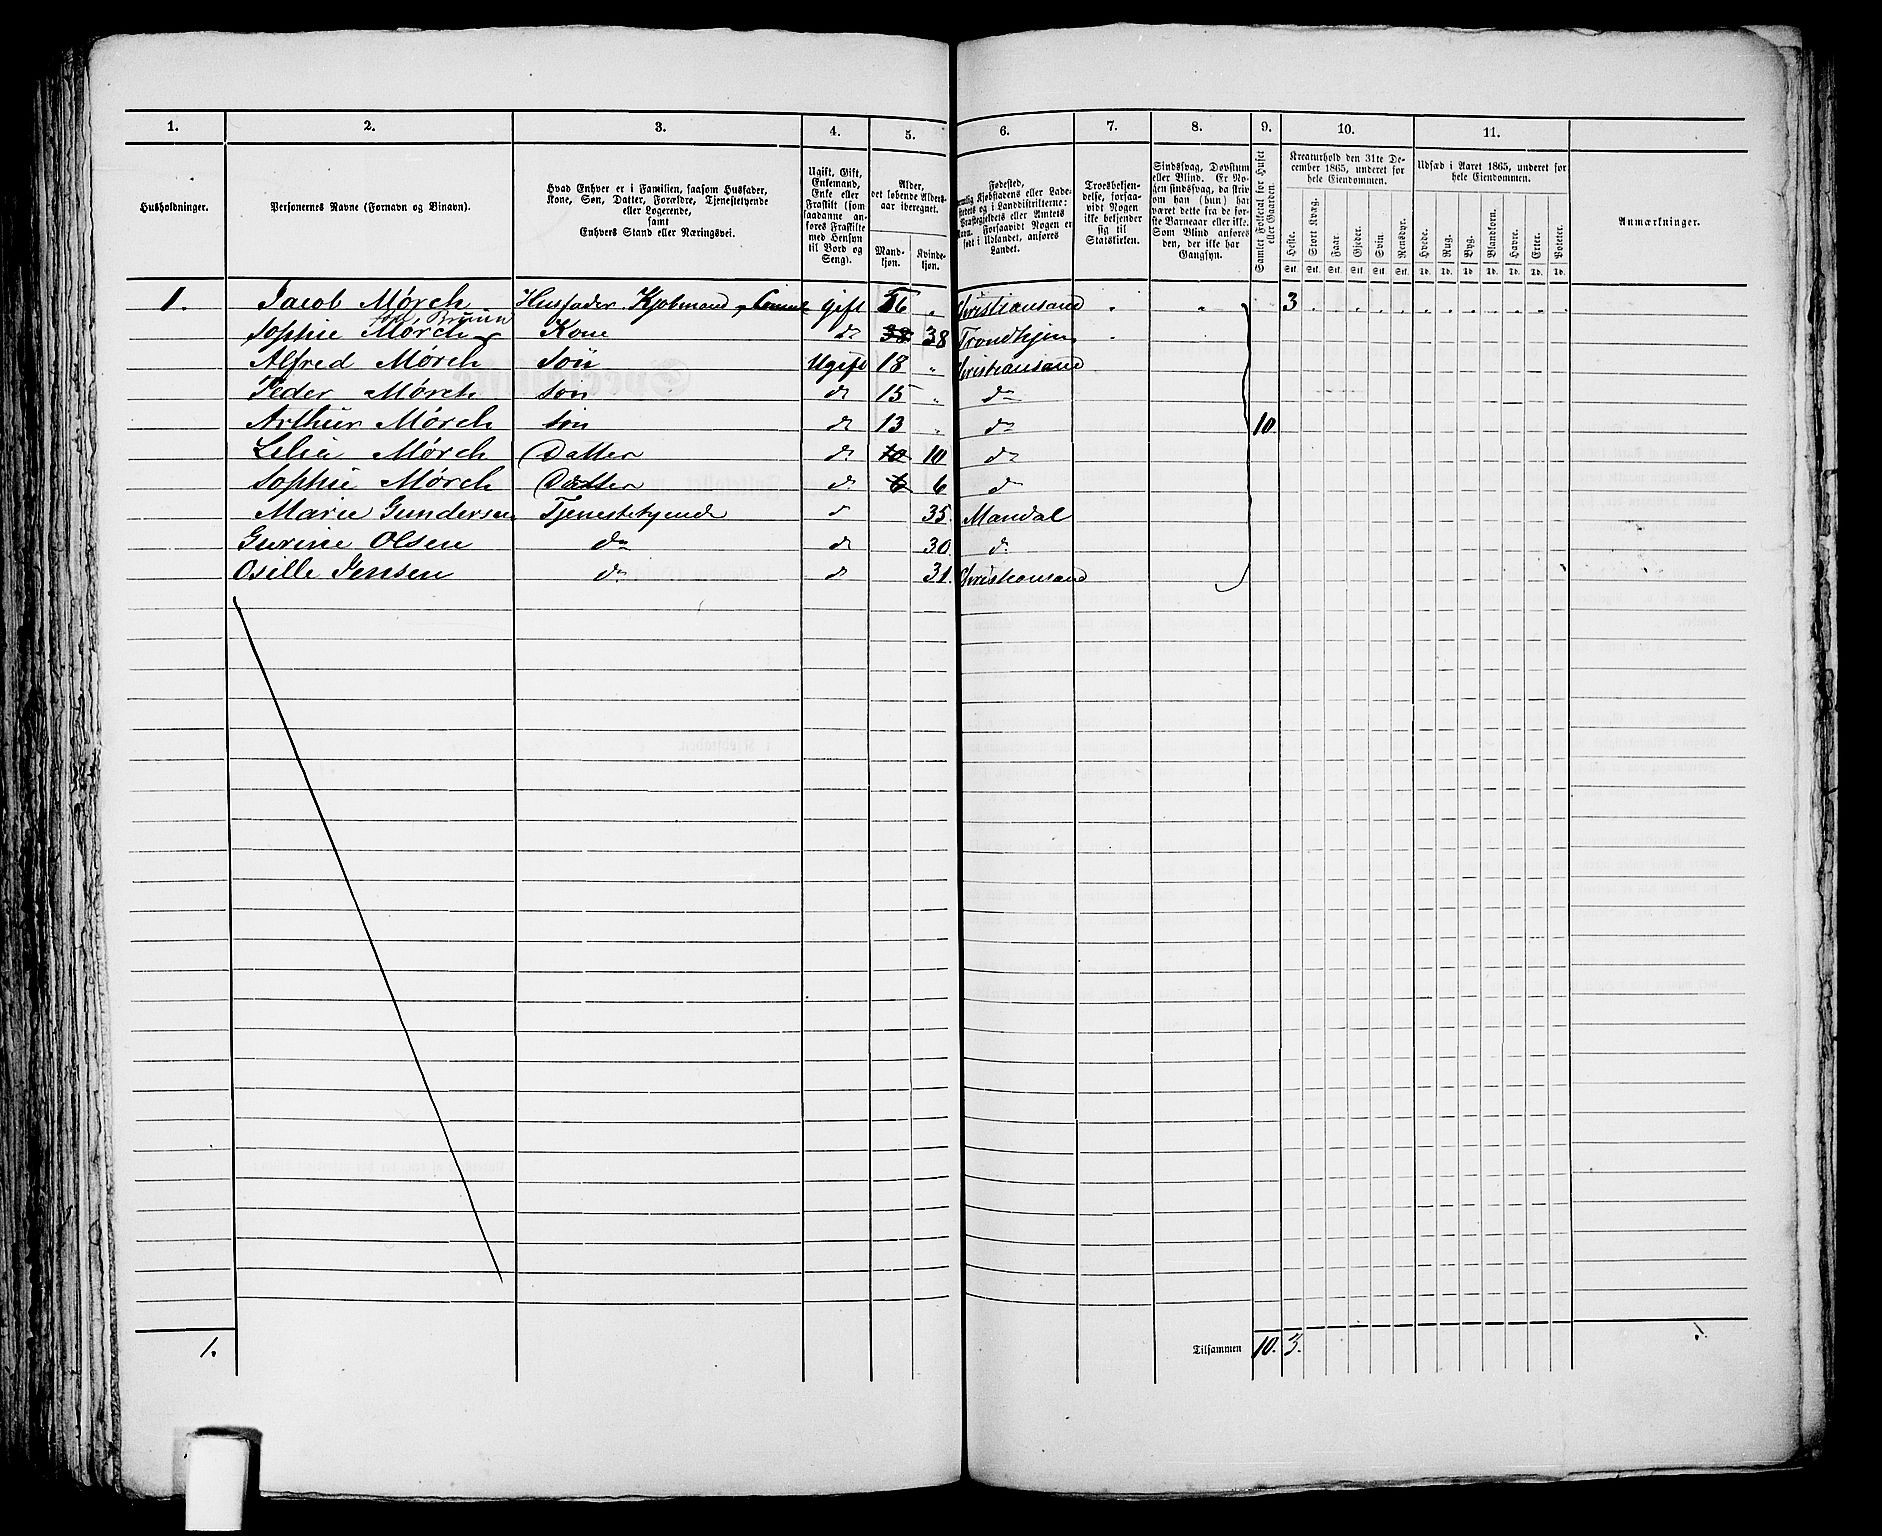 1. 2. 3. 4. 5. 6. 7. 8. 9. 10. 11.
Husholdninger.
Personernes Navne (Fornavn og Binavn).
Hvad Enhver er i Familien, saasom Husfader,
Kone, Søn, Datter, Forældre, Tjenestetyende
eller Logerende,
samt
Enhvers Stand eller Næringsvei.
Ugift, Gift,
Enkemand,
Enke eller
Fraskilt (som
saadanne an-
føres Fraskilte
med Hensyn
til Bord og
Seng).
Alder,
det løbende Alders-
aar iberegnet.
Mand-
kjøn.
Kvinde-
kjøn.
Fødested,
nemlig Kjøbstadens eller Lade-
stedets og i Landdistrikterne:
Præstegjeldets eller Amtets
Navn. Forsaavidt Nogen er
født i Udlandet, anføres
Landet.
Troesbekjen-
delse, forsaa-
vidt Nogen
ikke bekjender
sig til
Statskirken.
Sindssvag, Døvstum
eller Blind. Er No-
gen sindssvag, da skriv
om han (hun) har
været dette fra de før-
ste Barneaar eller ikke.
Som Blind anføres
den, der ikke har
Gangsyn.
Samlet Folketal for Huset
eller Gaarden.
Kreaturhold den 31te De-
cember 1865, underet for
hele Eiendommen.
Heste. Stort Kvæg. Faar. Gjeder. Svin. Rensdyr.
Stk. Stk. Stk. Stk. Stk. Stk.
Udsæd i Aaret 1865, underet for
hele Eiendommen.
Hvede. Rug. Byg. Blandkorn. Havre. Erter. Poteter.
Td. Td. Td. Td. Td. Td. Td.
Anmærkninger.
1. Jacob Mørch Husfader Kjøbmand gift 56 " Christiansand 3
født Bruun
Sophie Mørch Kone do 38 38 Trondhjem
Alfred Mørch Søn Ugift 18 " Christiansand
Peder Mørch Søn do 15 " do
Arthur Mørch Søn do 13 " do 10
Lilia Mørch Datter do 10 10 do
Sophie Mørch Datter do 6 6 do
Marie Gundersen Tjenestetyende do 35. Mandal
Gurine Olsen do do 30. do
Osille Jensen do do 31. Christiansand
1. Tilsammen 10. 3.